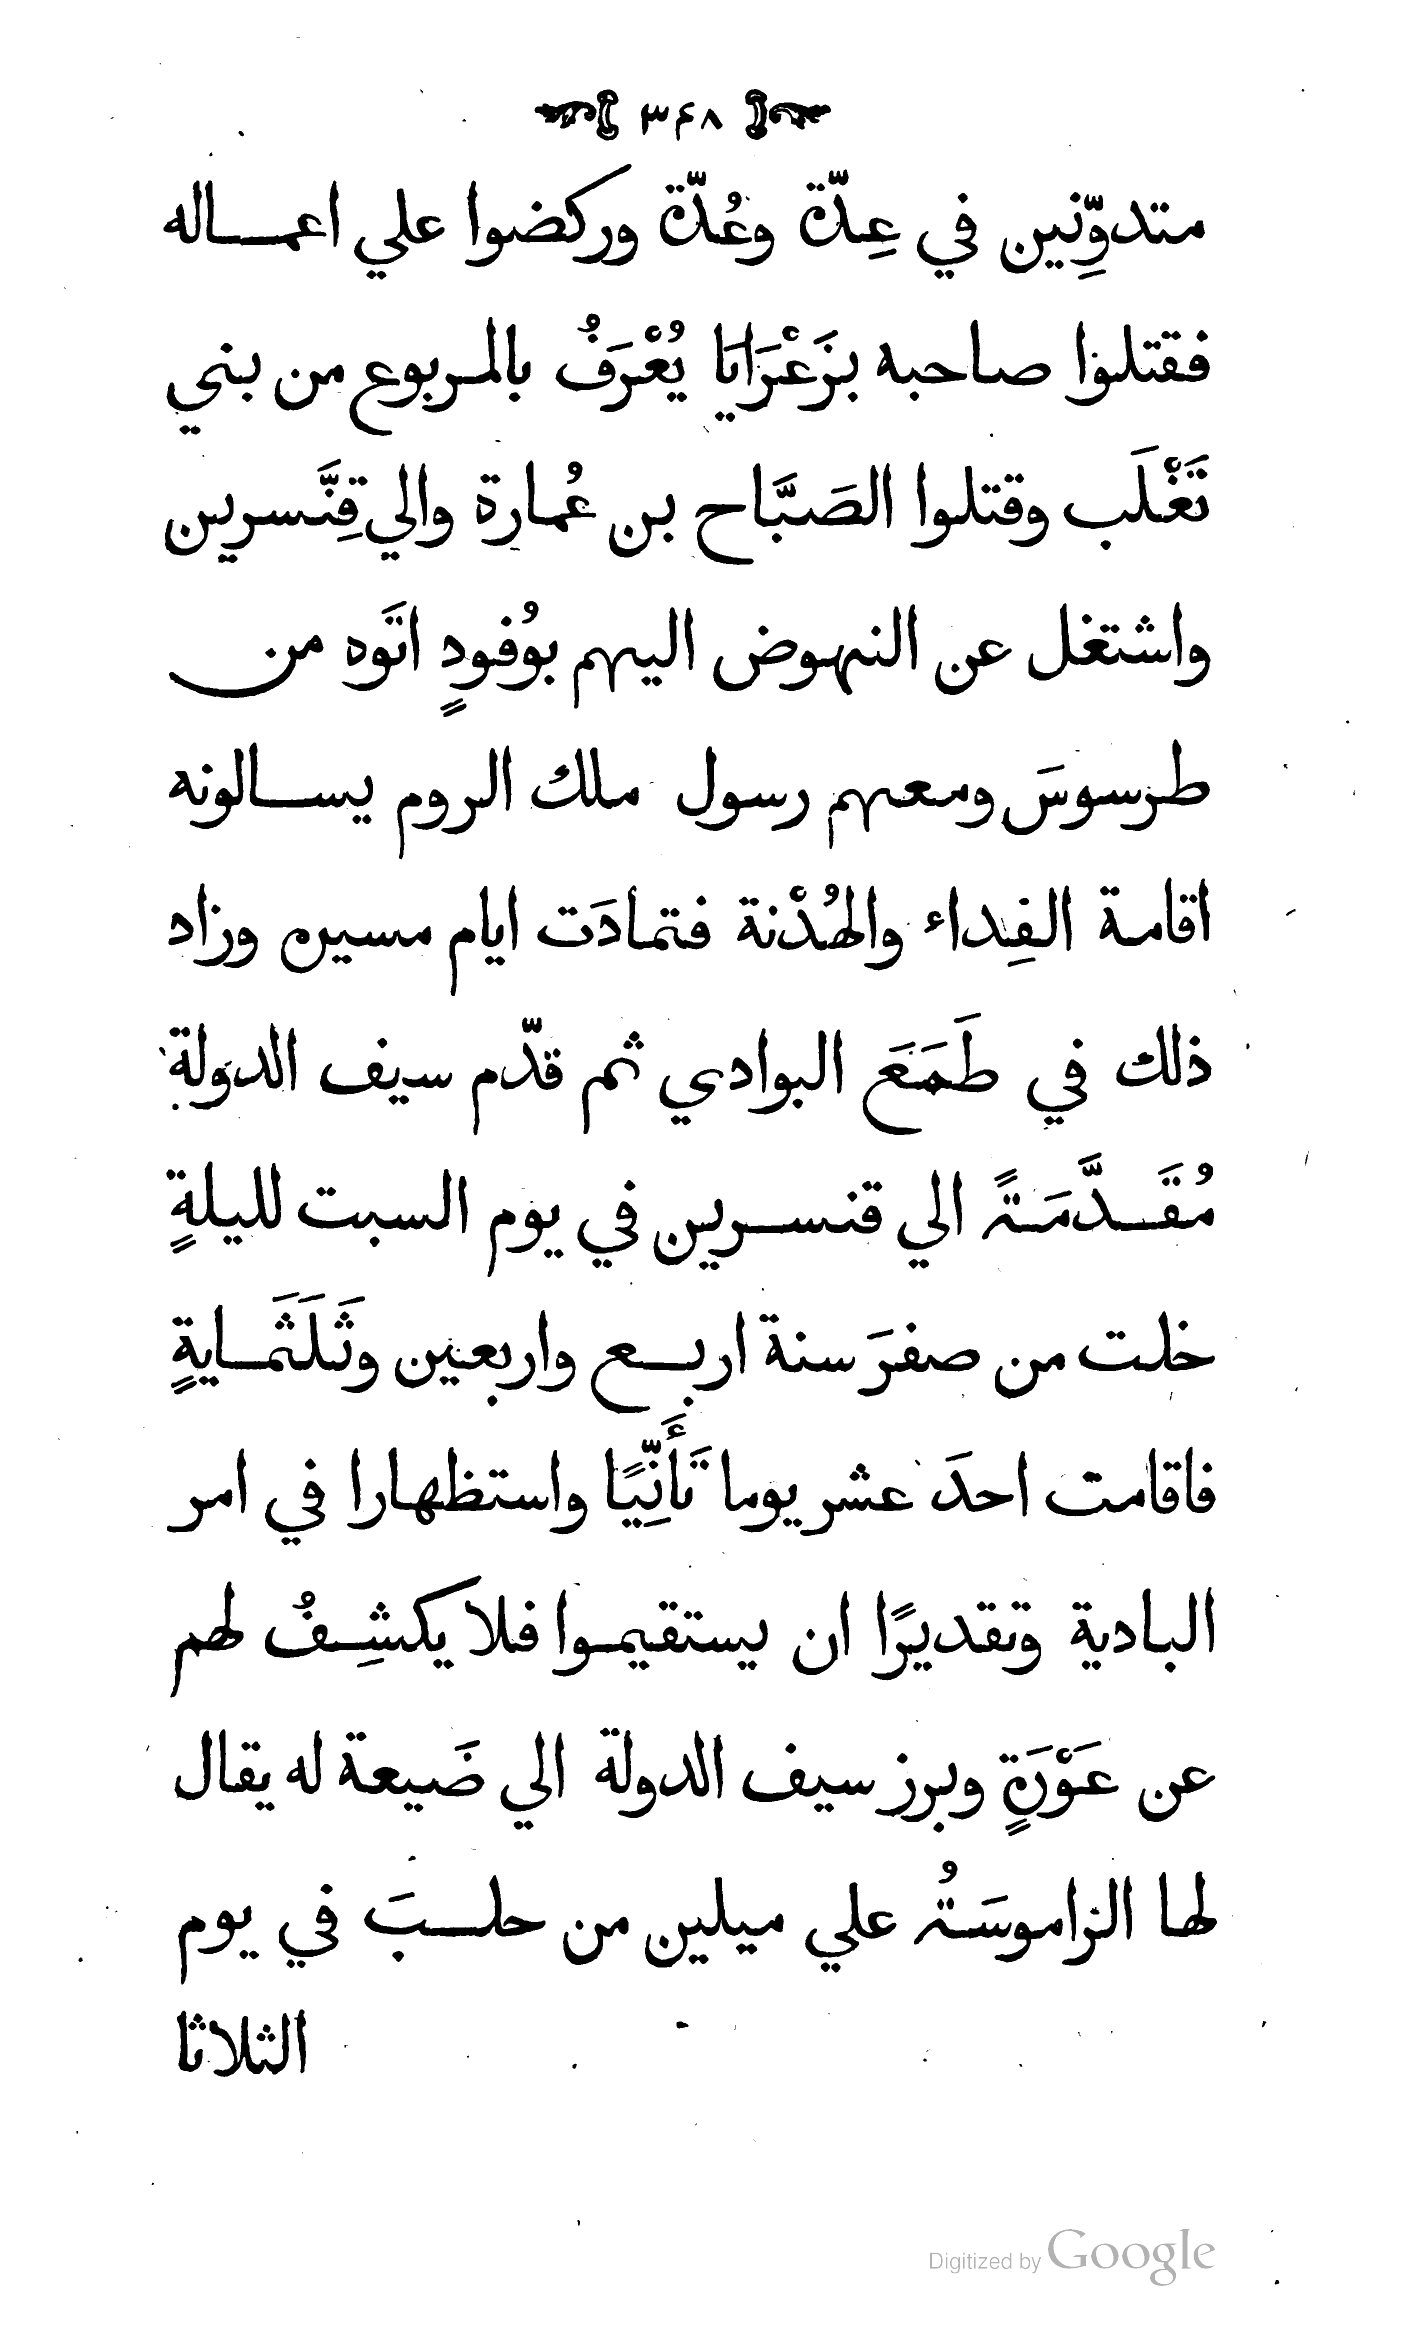 ٣۴٨
متدوِّنين في عِدّة وعُدّة وركضوا علي اعماله
فقتلوا صاحبه بزَعْرَايَا يُعْرَفُ بالمربوع من بني
تَغْلَب وقتلوا الصَبَّاح بن عُمارة والي قِنَّسرين
واشتغل عن النهوض اليهم بوُفودٍ اتَوه من
طرسوسَ ومعهم رسول ملك الروم يسالونه
اقامة الفِداء والهُدْنة فتمادَت ايام مسيره وزاد
ذلك في طَمَعَ البوادي ثم قدّم سيف الدولة
مُقَدَّمَةً الي قنسرين في يوم السبت لليلةٍ
خلت من صفرَ سنة اربع واربعين وثَلَثَمايةٍ
فاقامت احدَ عشر يوما تَأَنِّيًا واستظهارا في امر
البادية وتقديرًا ان يستقيموا فلا يكشِفُ لهم
عن عَوْرَةٍ وبرز سيف الدولة الي ضَيعة له يقال
لها الزاموسَةُ علي ميلين من حلبَ في يوم
الثلاثا
Digitized by Google